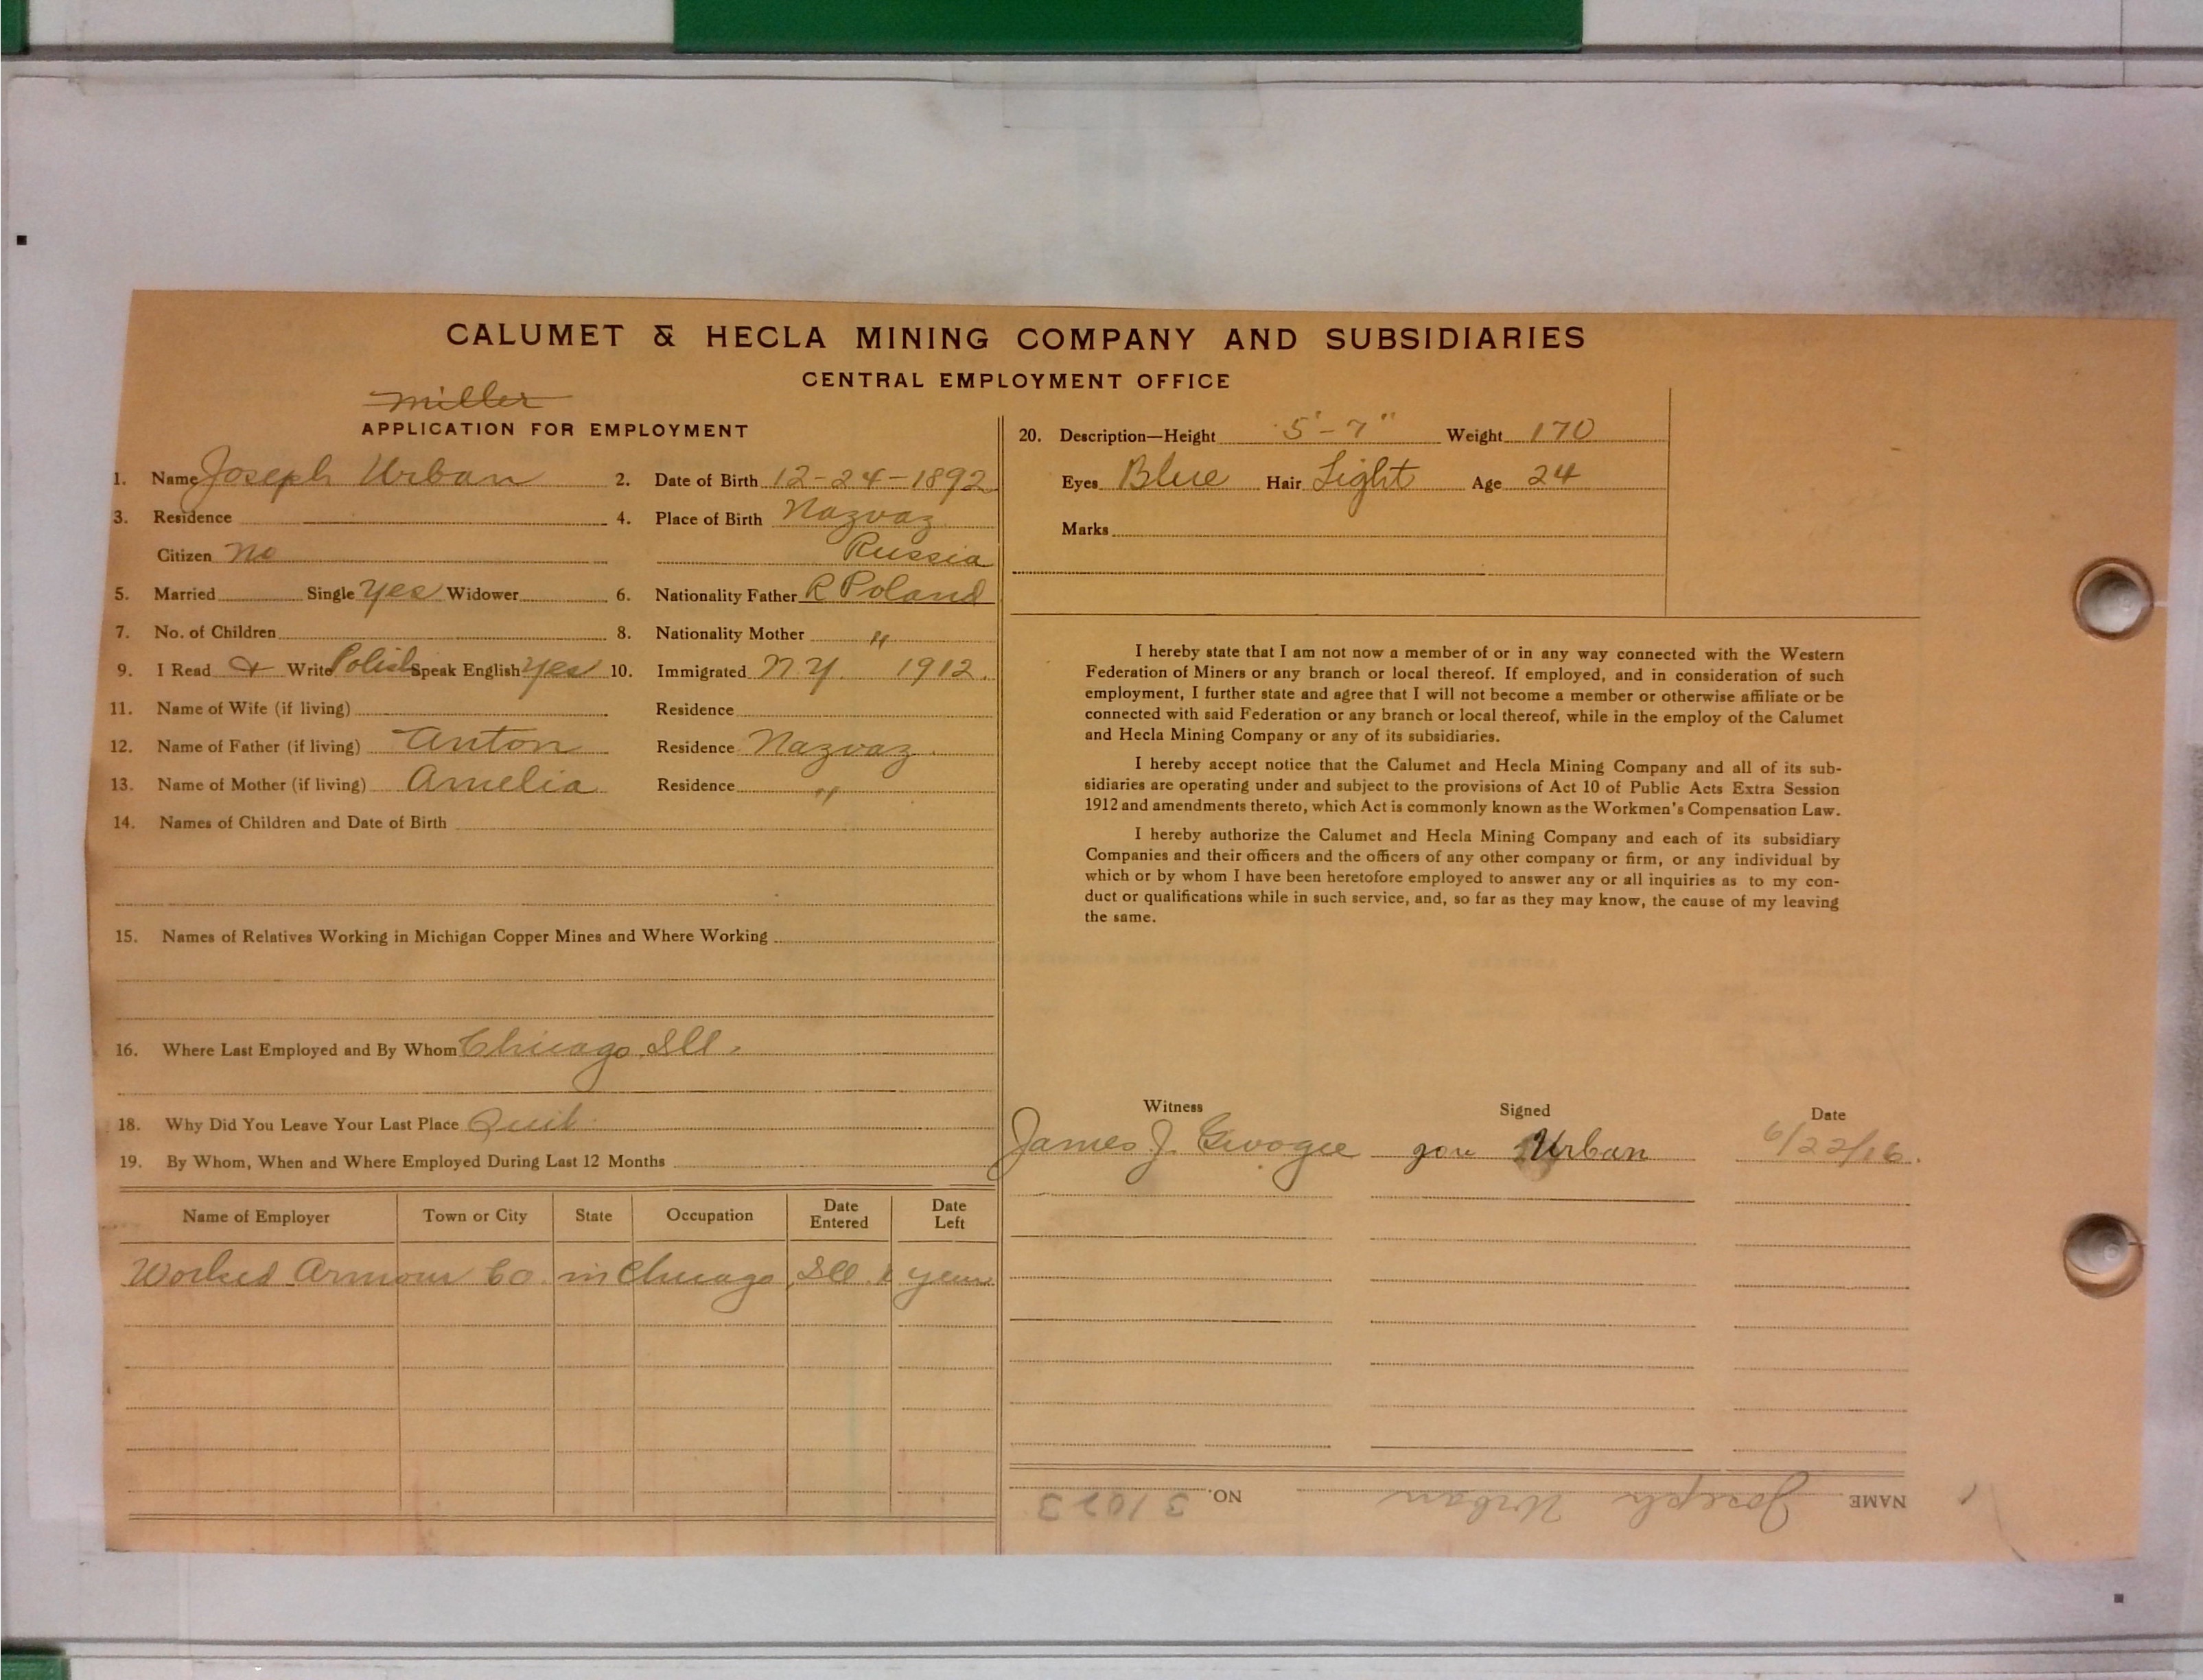 CALUMET & HECLA MINING COMPANY AND SUBSIDIARIES
CENTRAL EMPLOYMENT OFFICE
Miller
APPLICATION FOR EMPLOYMENT
1. Name Joseph Urban 2. Date of Birth 12-24-1892
3. Residence 4. Place of Birth Nazvaz
Citizen No Russia
5. Married Single Yes Widower 6. Nationality Father R Poland
7. No. of Children 8. Nationality Mother "
9. I Read & Write Polish Speak English Yes 10. Immigrated N.Y. 1912.
11. Name of Wife (if living) Residence
12. Name of Father (if living) Anton Residence Nazvaz.
13. Name of Mother (if living) Amelia Residence "
14. Names of Children and Date of Birth
15. Names of Relatives Working in Michigan Copper Mines and Where Working
16. Where Last Employed and By Whom Chicago Ill.
18. Why Did You Leave Your Last Place Quit
19. By Whom, When and Where Employed During Last 12 Months
Name of Employer Town or City State Occupation Date Entered Date Left
Worked Armour Co. in Chicago, Ill. 1 year
20. Description—Height 5'-7" Weight 170
Eyes Blue Hair Light Age 24
Marks
I hereby state that I am not now a member of or in any way connected with the Western
Federation of Miners or any branch or local thereof. If employed, and in consideration of such
employment, I further state and agree that I will not become a member or otherwise affiliate or be
connected with said Federation or any branch or local thereof, while in the employ of the Calumet
and Hecla Mining Company or any of its subsidiaries.
I hereby accept notice that the Calumet and Hecla Mining Company and all of its sub-
sidiaries are operating under and subject to the provisions of Act 10 of Public Acts Extra Session
1912 and amendments thereto, which Act is commonly known as the Workmen's Compensation Law.
I hereby authorize the Calumet and Hecla Mining Company and each of its subsidiary
Companies and their officers and the officers of any other company or firm, or any individual by
which or by whom I have been heretofore employed to answer any or all inquiries as to my con-
duct or qualifications while in such service, and, so far as they may know, the cause of my leaving
the same.
Witness Signed Date
James J. Urban 6/22/16.
NAME Joseph Urban NO. 31023